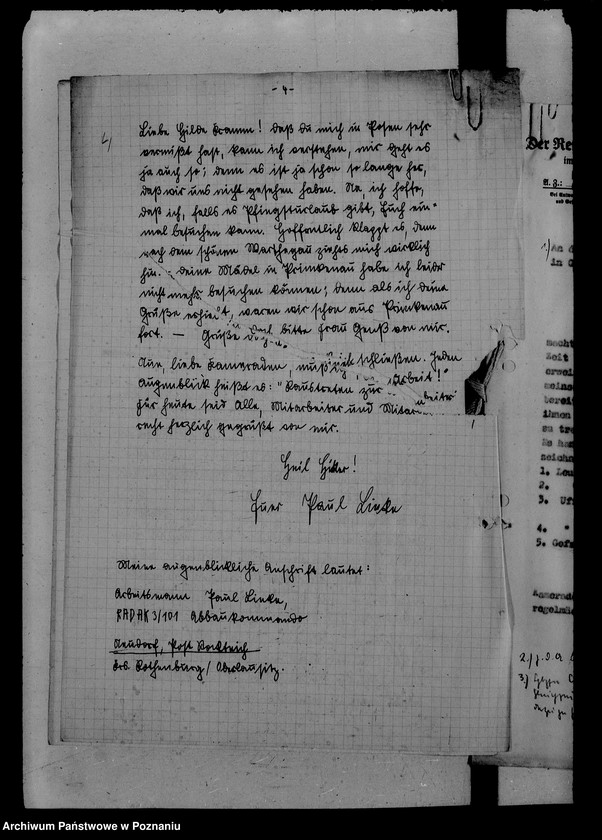 - 4 -
4)
Liebe Hilde Kramm! Daß du mich in Posen sehr
vermißt hast, kann ich verstehen, mir geht es
ja auch so; denn es ist ja schon so lange her,
daß wir uns nicht gesehen haben. Na ich hoffe,
daß ich, falls es Pfingsturlaub gibt, Euch ein=
mal besuchen kann. Hoffentlich klappt es, denn
nach dem schönen Warthegau ziehts mich wirklich
hin. - Deine Mädel in Primkenau habe ich leider
nicht mehr besuchen können; denn als ich deine
Grüße erhielt, waren wir schon aus Primkenau
fort. — Grüße bitte Frau Genß von mir.
Nun, liebe Kameraden, muß ich schließen. Jeden
Augenblick heißt es: "Raustreten zur Arbeit!"
Für heute seid Alle, Mitarbeiter und
recht herzlich gegrüßt von mir.
Heil Hitler!
Euer Paul Linke
Meine augenblickliche Anschrift lautet:
Arbeitsmann Paul Linke,
RADAK 3/101 Abbaukommando
Neudorf, Post
Krs. Rothenburg/Oberlausitz.
Der Re
im
A. Z.:
An
in
macht
Zeit
erwei
meine
bereit
ihnen
zu tre
Es han
zeichn
1. Leu
2.
3. Uff
4. "
5. Gefr
Kamerad
regelmä
2.)
3.)
Archiwum Państwowe w Poznaniu